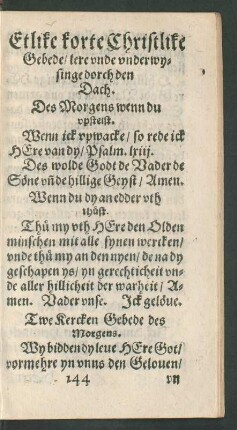 Etlike korte Christlike
Gebede/ lere vnde vnderwy-
singe dorch den
Dach.
Des Morgens wenn du
vpsteist.
Wenn ick vpwacke/ so rede ick
HEre van dy/ Psalm. lxiij.
Des wolde Godt de Vader de
Söne vn̄ de hillige Geyst/ Amen.
Wenn du dy an edder vth
thüst.
Thü my vth HEre den Olden
minschen mit alle synen wercken/
vnde thü my an den nyen/ de na dy
geschapen ys/ yn gerechticheit vn-
de aller hillicheit der warheit/ A-
men. Vader vnse. Jck gelöue.
Twe Kercken Gebede des
Morgens.
Wy bidden dy leue HEre Got/
vormehre yn vnns den Gelouen/
144 vn